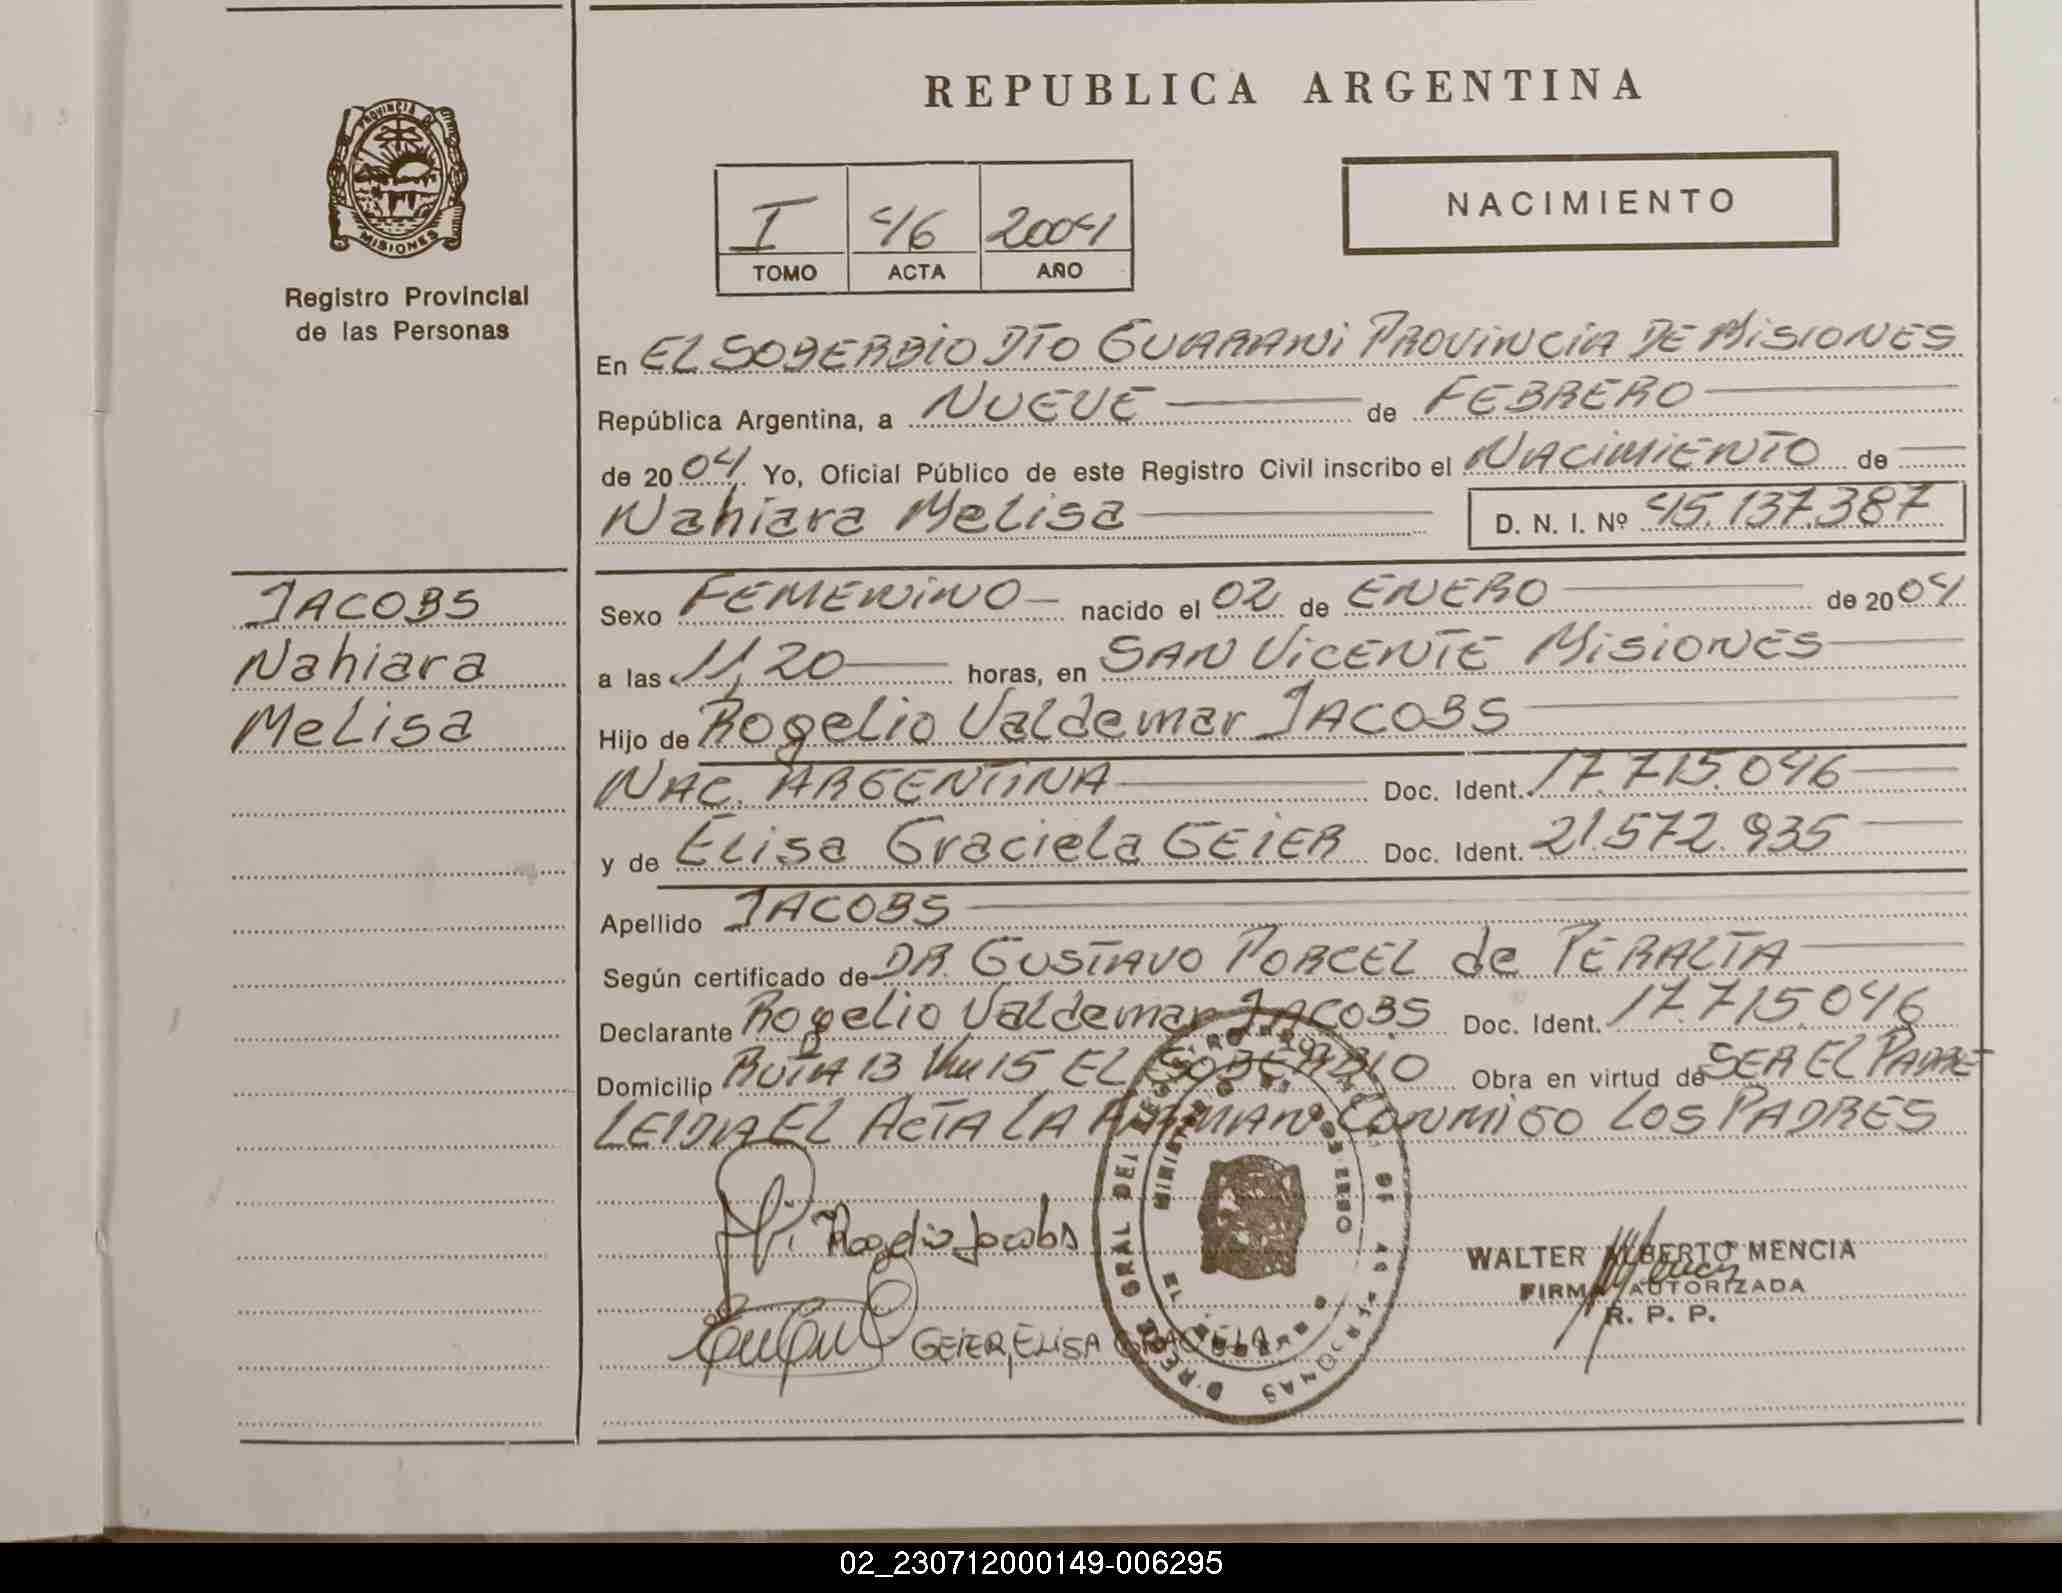 REPUBLICA ARGENTINA
PROVINCIA DE
MISIONES
Registro Provincial
de las Personas
I 46 2004
TOMO ACTA AÑO
NACIMIENTO
En EL SOBERBIO DTO GUARANI PROVINCIA DE MISIONES
República Argentina, a NUEVE de FEBRERO
de 2004 Yo, Oficial Público de este Registro Civil inscribo el NACIMIENTO de
Nahiara Melisa D. N. I. Nº 45.137.387
JACOBS
Nahiara
Melisa
Sexo FEMENINO nacido el 02 de ENERO de 2004
a las 11,20 horas, en SAN VICENTE MISIONES
Hijo de Rogelio Valdemar JACOBS
NAC. ARGENTINA Doc. Ident. 17.715.046
y de Elisa Graciela GEIER Doc. Ident. 21.572.935
Apellido JACOBS
Según certificado de DR. GUSTAVO PORCEL de PERALTA
Declarante Rogelio Valdemar JACOBS Doc. Ident. 17.715.046
Domicilio RUTA 13 Km 15 EL SOBERBIO Obra en virtud de SER EL PADRE
LEIDA EL ACTA LA FIRMAN CONMIGO LOS PADRES
Rogelio Jacobs
GEIER, ELISA GRACIELA
WALTER ALBERTO MENCIA
FIRMA AUTORIZADA
R. P. P.
02_230712000149-006295